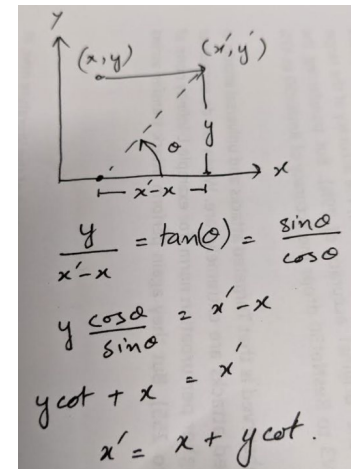 y
(x,y)
(x',y')
θ
y
x
x'-x
y / x'-x = tan(θ) = sinθ / cosθ
y cosθ / sinθ = x'-x
ycot + x = x'
x' = x + ycot.